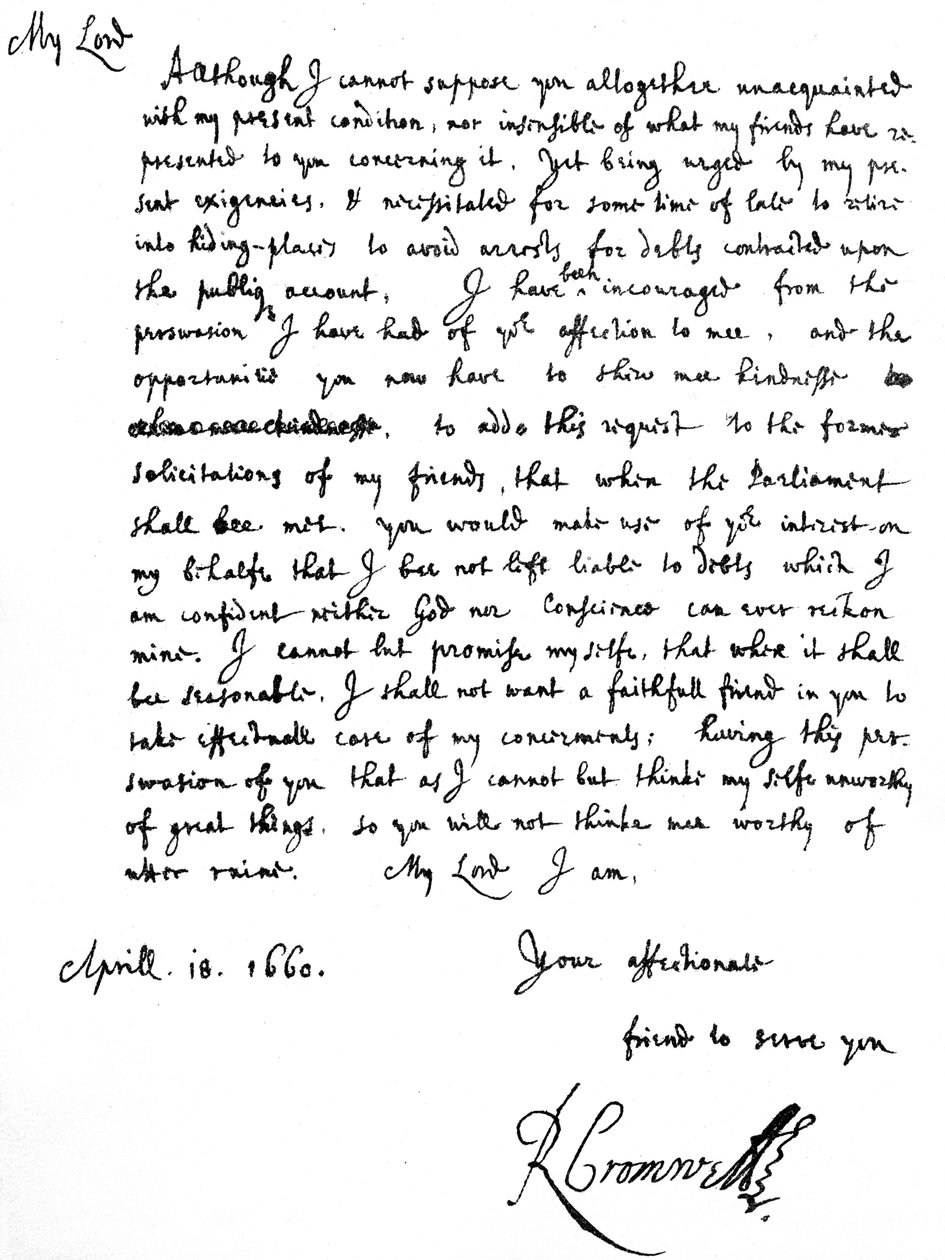 My Lord
Allthough I cannot suppose you alltogether unacquainted
with my present condition, nor insensible of what my friends have re-
presented to you concerning it. Yet being urged by my pre-
sent exigencies, & necessitated for some time of late to retire
into hiding-places to avoid arrests for debts contracted upon
the publiq account, I have been incouraged from the
perswasion I have had of yor affection to mee, and the
opportunitie you now have to shew mee kindnesse
to adde this request to the former
solicitations of my friends, that when the Parliament
shall bee met. you would make use of yor interest on
my behalfe that I bee not left liable to debts which I
am confident neither God nor Conscience can ever reckon
mine. I cannot but promise my selfe, that when it shall
bee seasonable, I shall not want a faithfull friend in you to
take effectuall care of my concernments; having this per-
swasion of you that as I cannot but thinke my selfe unworthy
of great things, so you will not thinke mee worthy of
utter ruine. My Lord I am,
Aprill. 18. 1660.
Your affectionate
friend to serve you
R Cromwell